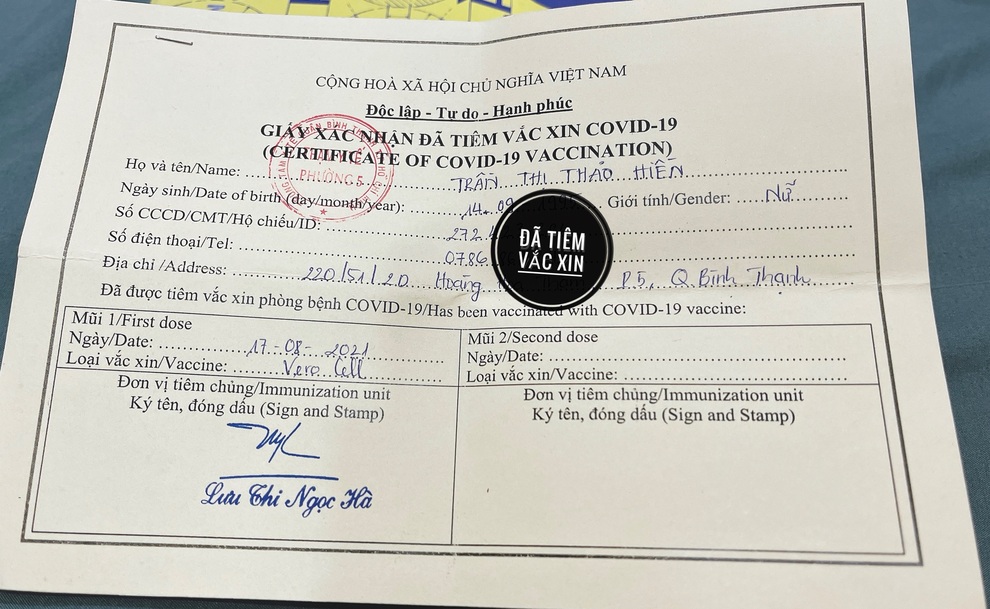 CỘNG HOÀ XÃ HỘI CHỦ NGHĨA VIỆT NAM
Độc lập - Tự do - Hạnh phúc
GIẤY XÁC NHẬN ĐÃ TIÊM VẮC XIN COVID-19
(CERTIFICATE OF COVID-19 VACCINATION)
PHƯỜNG 5
Họ và tên/Name: TRẦN THỊ THẢO HIỀN
Ngày sinh/Date of birth (day/month/year): 14. 09 Giới tính/Gender: Nữ
Số CCCD/CMT/Hộ chiếu/ID: 272
Số điện thoại/Tel: 0786
ĐÃ TIÊM
VẮC XIN
Địa chỉ /Address: 220/51/20 Hoàng P5, Q Bình Thạnh
Đã được tiêm vắc xin phòng bệnh COVID-19/Has been vaccinated with COVID-19 vaccine:
Mũi 1/First dose
Ngày/Date: 17-08-2021
Loại vắc xin/Vaccine: Vero Cell
Đơn vị tiêm chủng/Immunization unit
Ký tên, đóng dấu (Sign and Stamp)
Lưu Thi Ngọc Hà
Mũi 2/Second dose
Ngày/Date:
Loại vắc xin/Vaccine:
Đơn vị tiêm chủng/Immunization unit
Ký tên, đóng dấu (Sign and Stamp)